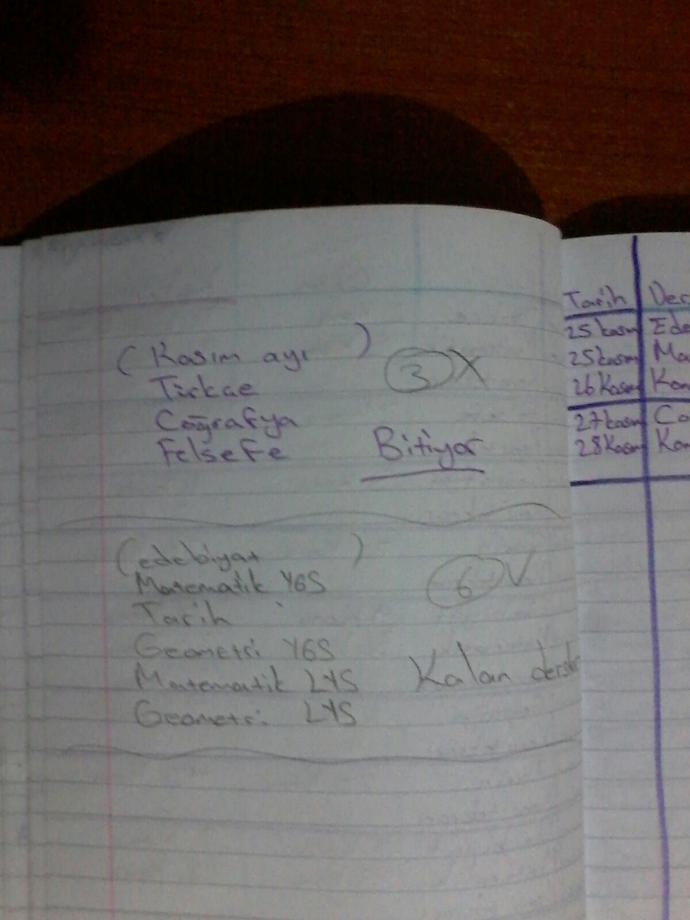 ( Kasım ayı )
Türkçe
3 X
Coğrafya
Felsefe
Bitiyor
(edebiyat )
Matematik YGS
6 V
Tarih
Geometri YGS
Matematik LYS
Kalan dersler
Geometri LYS
Tarih Der
25 kasım Ede
25 kasım Ma
26 Kasım Kom
27 kasım Co
28 Kasım Kom